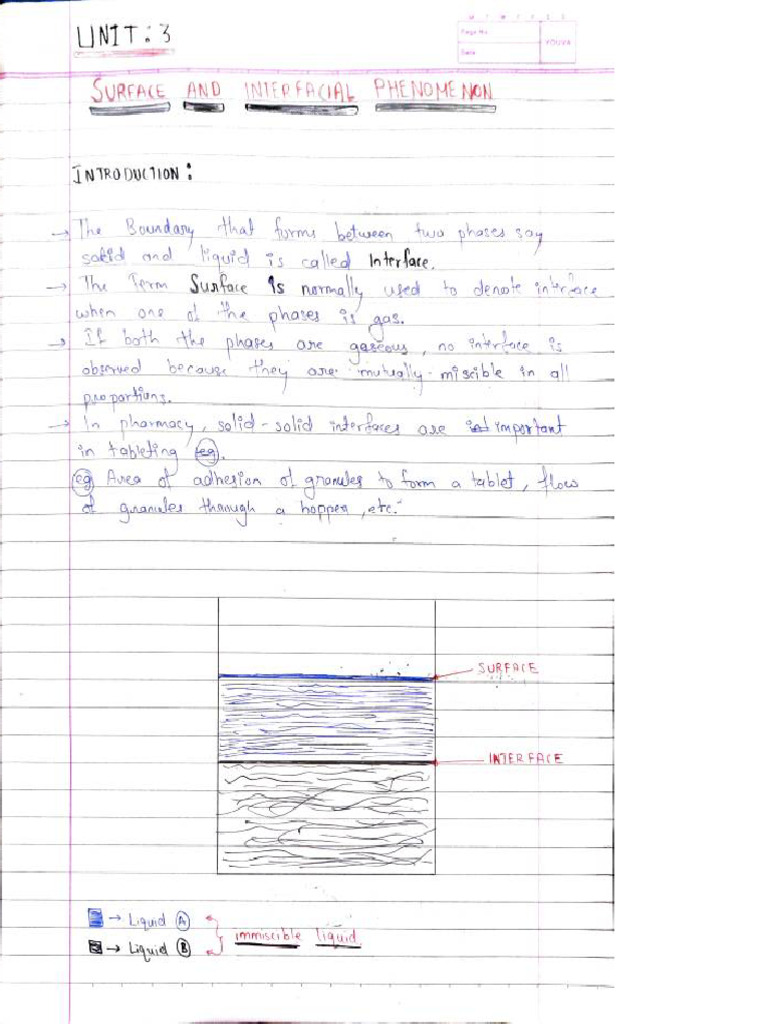 UNIT: 3
M T W T F S S
Page No.
Date
YOUVA
SURFACE AND INTERFACIAL PHENOMENON
INTRODUCTION:
→ The Boundary that forms between two phases say
solid and liquid is called Interface.
→ The Term Surface is normally used to denote interface
when one of the phases is gas.
→ If both the phases are gaseous, no interface is
observed because they are mutually miscible in all
proportions.
→ In pharmacy, solid-solid interfaces are important
in tableting
eg Area of adhesion of granules to form a tablet, flow
of granules through a hopper, etc.
SURFACE
INTERFACE
→ Liquid A
→ Liquid B
immiscible liquid